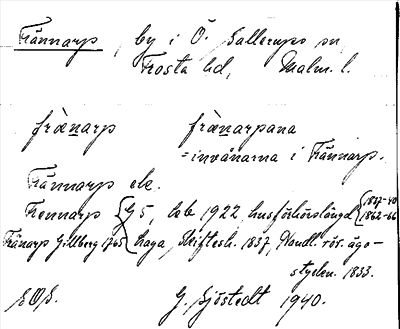 Frännarp, by i Ö. Sallerups sn,
Frosta hd, Malm. l.
frænarp frænarpana
=invånarna i Frännarp.
Frännarp ek.
Frennarp { G5, 1922, husförhörslängd { 1827-40
1862-66
Fränarp Gillberg 1765 { haga, Skiftesh. 1837, Handl. rör. ägo-
stycken. 1833.
G. Sjöstedt 1940.